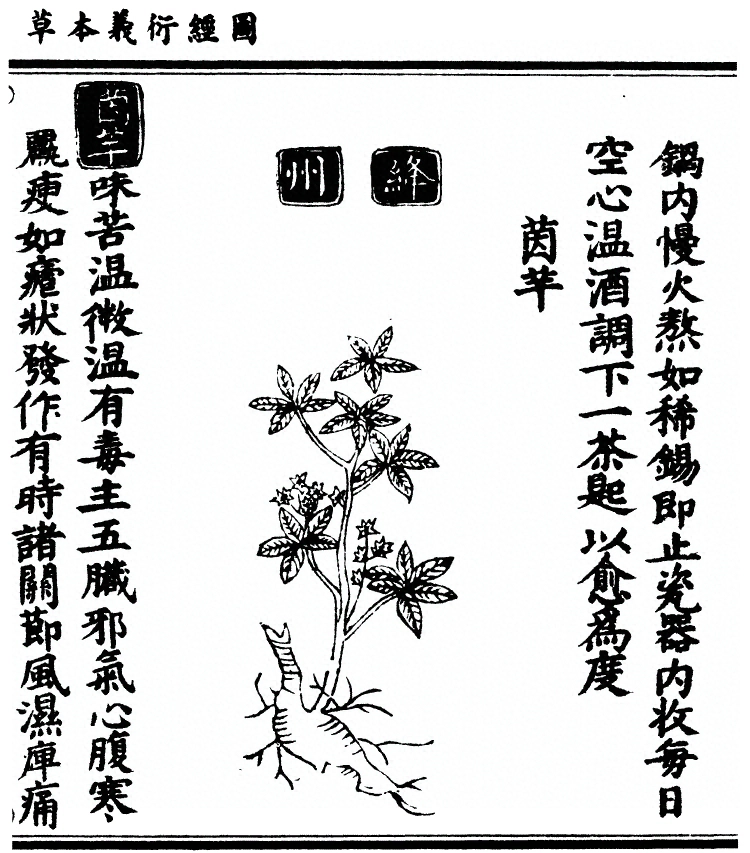 圖經衍義本草
鍋内慢火熬如稀錫即止瓷器内收每日
空心温酒調下一茶匙以愈爲度
茵芋
絳州
茵芋味苦温微温有毒主五臟邪氣心腹寒
羸瘦如瘧狀發作有時諸關節風濕痺痛